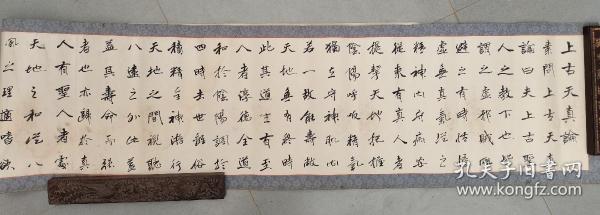 上古天真論
素問上古天真
論曰夫上古聖
人之教下也皆
謂之虛邪賊風
避之有時恬惔
虛無真氣從之
精神內守病安
從來有真人者
提挈天地把握
陰陽呼吸精氣
獨立守神肌肉
若一故能壽敝
天地無有終時
此其道生有至
人者淳德全道
和於陰陽調於
四時去世離俗
積精全神游行
天地之間視聽
八達之外此蓋
益其壽命而強
者也亦歸於真
人有聖人者處
天地之和從八
風之理適嗜欲
孔夫子旧书网
www.kongfz.com